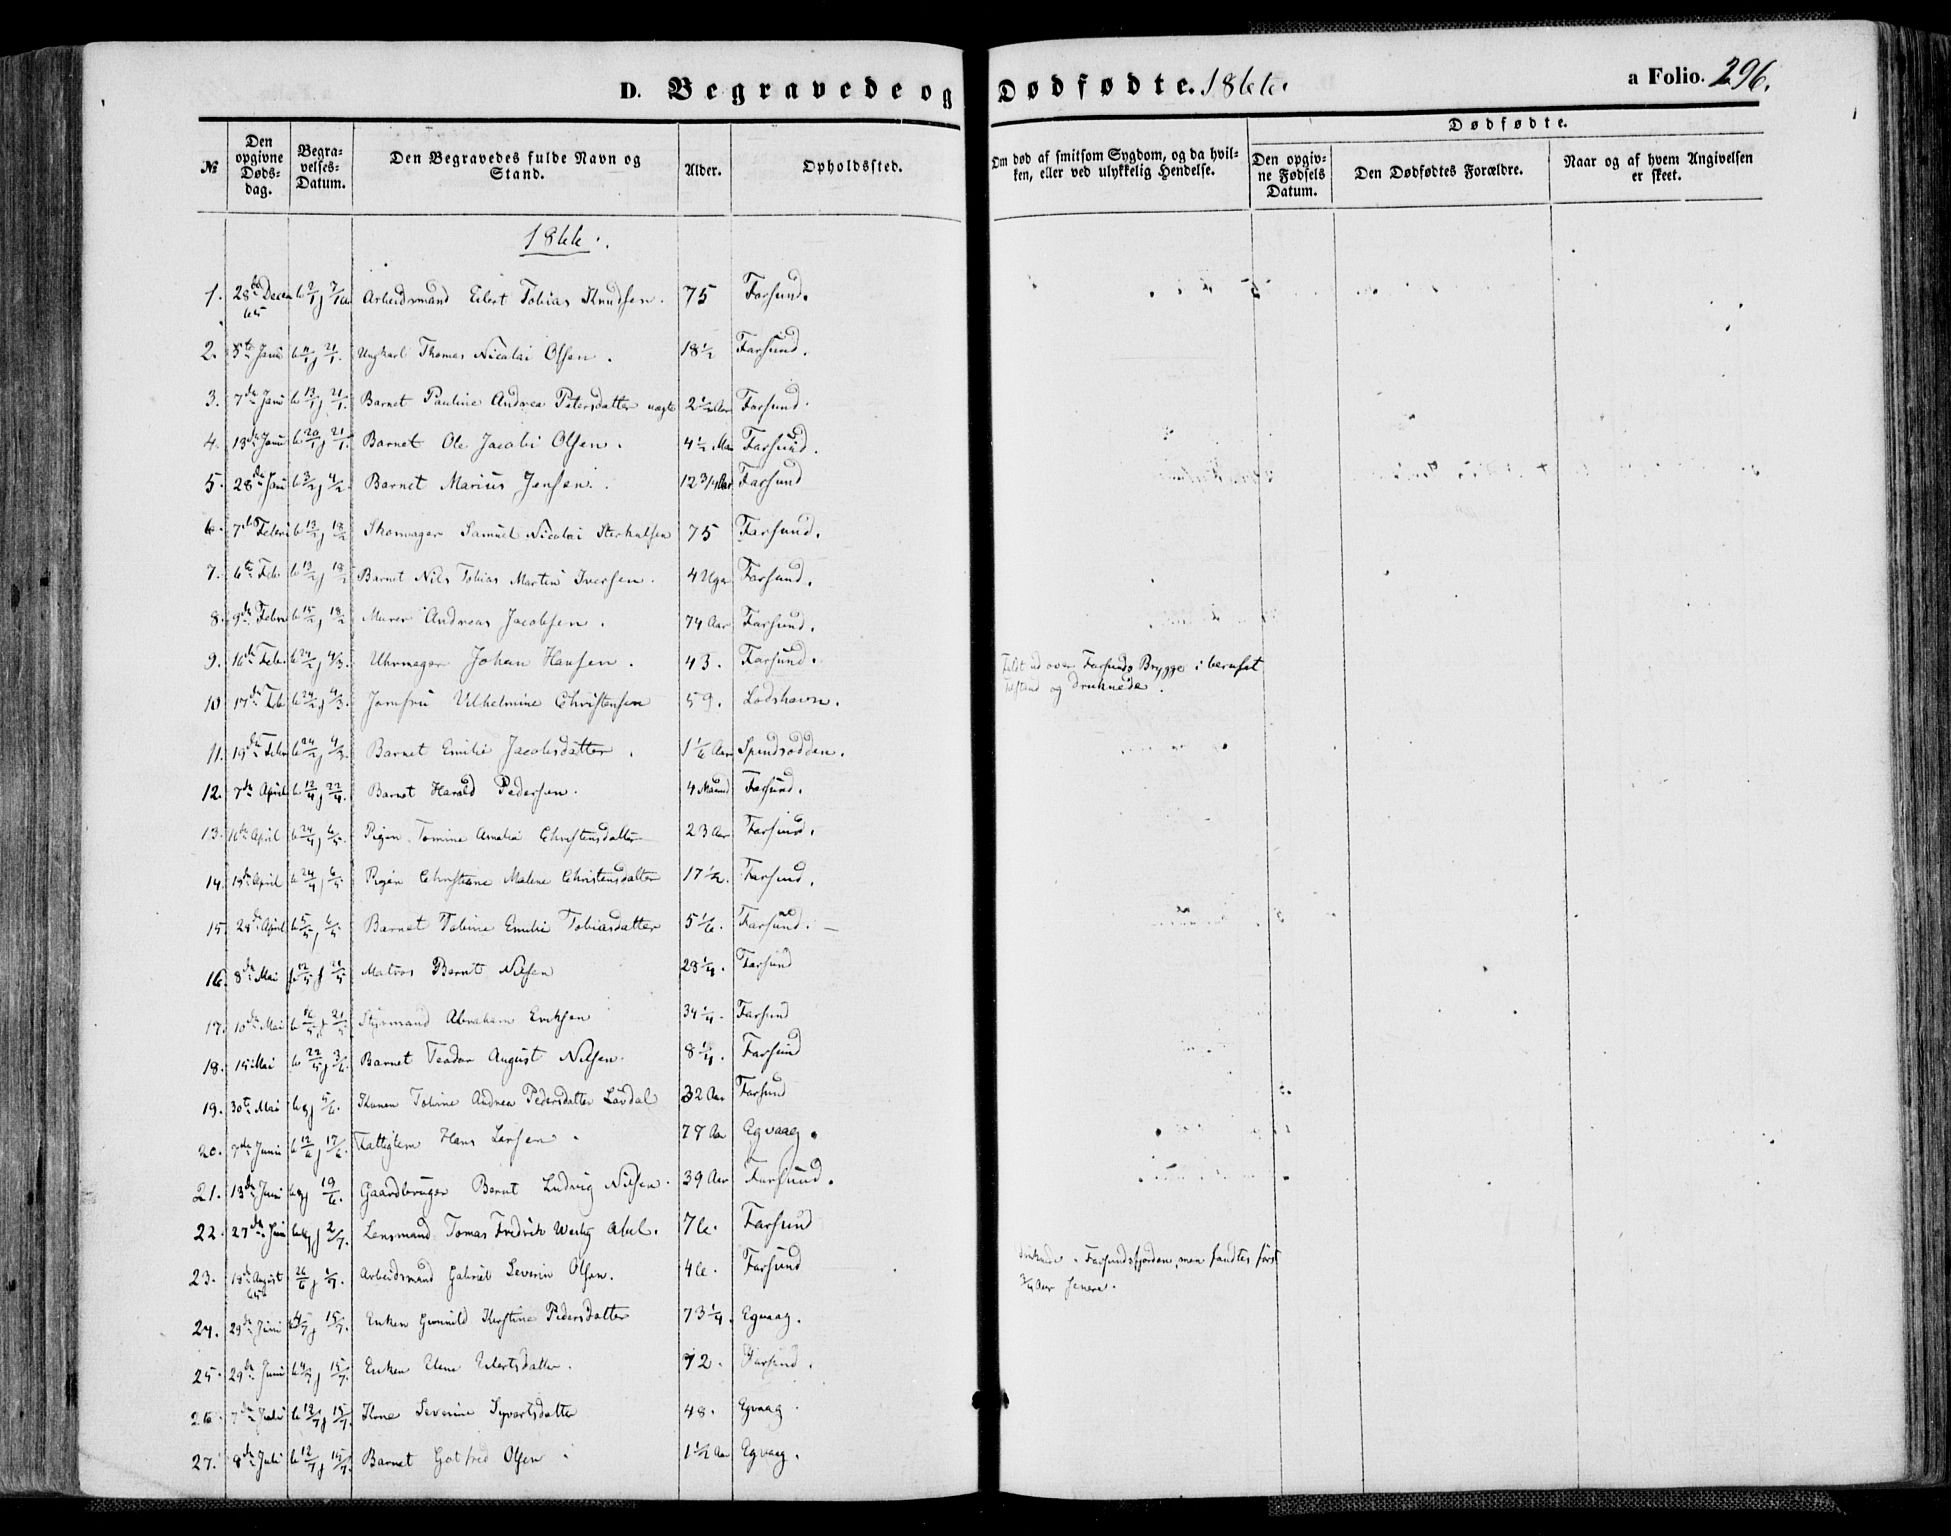 D. Begravede og Dødfødte. 1866. a Folio. 296.
№ Den opgivne Døds-dag. Begra-velses-Datum. Den Begravedes fulde Navn og Stand. Alder. Opholdssted. Om død af smitsom Sygdom, og da hvil-ken, eller ved ulykkelig Hendelse. Dødfødte. Den opgiv-ne Fødsels Datum. Den Dødfødtes Forældre. Naar og af hvem Angivelsen er skeet.
1866.
1. 28de Decem 65 Arbeidsmand Eilert Tobias Knudsen. 75 Farsund.
2. 5te Janu b 11/1 j 21/1. Ungkarl Thomas Nicolai Olsen. 18 1/2 Farsund.
3. 7de Janu b 13/1 j 21/1. Barnet Pauline Andrea Petersdatter uægte 2 1/2 Aar Farsund.
4. 13de Janu b 20/1 j 21/1. Barnet Ole Jacobi Olsen. 4 1/2 Ma Farsund.
5. 28de Janu b 3/2 j 4/2. Barnet Marius Jensen. 12 3/4 Aar Farsund
6. 7de Febru b 13/2 j 18/2 Skomager Samuel Nicolai 75 Farsund.
7. 6te Feb b 13/2 j 18/2 Barnet Nils Tobias Martin Iversen. 4 Uger Farsund.
8. 9de Febru b 15/2 j 18/2 Murer Andreas Jacobsen. 74 Aar Farsund.
9. 16de Feb. b 24/2 j 4/3. Uhrmager Johan Hansen. 43. Farsund. Faldt ud over Farsunds Brygge i beruset Tilstand og druknede.
10 17de Feb b 24/2 j 4/3. Jomfru Vilhelmine Christensen 59. Lodshavn.
11. 19de Febr b 24/2 j 4/3. Barnet Emilie Jacobsdatter. 1 1/6 Aar Spindsodden.
12. 7de April b 12/4 j 22/4. Barnet Harald Pedersen. 4 Maaned Farsund.
13. 16de April b 24/4 j 6/5. Pigen Tomine Amalia Christensdatter 23 Aar Farsund.
14. 19de April b 24/4 j 6/5 Pigen Christiane Malene Christensdatter 17 1/2. Farsund.
15. 28de April b 5/5 j 6/5 Barnet Tobine Emilie Tobiasdatter 5 1/6. Farsund.
16. 8de Mai b 12/5 j 21/5 Matros Bernt Nilsen 28 1/4. Farsund
17. 10de Mai b 16/5 j 21/5 Styrmand Abraham Eriksen 34 1/4. Farsund
18. 15 Mai b 22/5 j 3/6. Barnet Teodor August Nilsen. 8 1/4. Farsund
19. 30te Mai b og j 5/6. Konen Tobine Andrea Pedersdatter Lövdal 32 Aar Farsund
20. 7de Juni b 12/6 j 17/6. Fattiglem Hans Larsen 77 Aar Egvaag.
21. 13de Juni b og j 19/6. Gaardbruger Bernt Ludvig Nilsen. 39 Aar Farsund.
22. 27de Juni b og j 2/7. Lensmand Tomas Fredrik Abel. 76. Farsund
23. 15de August 65 26/6 j 1/7. Arbeidsmand Gabriel Severin Olsen. 46. Farsund druknede i Farsundsfjorden, men fandtes först 3/4 Aar senere.
24. 29de Juni j 15/7. Enken Gunnild Kerstine Pedersdatter 73 1/4. Egvaag.
25. 29de Juni b 4/7 j 15/7. Enken Elene 72. Farsund.
26. 7de Juli b 13/7 j 15/7. Kone Severine Syvertsdatter 48. Egvaag
27. 8de Juli b 12/7 j 15/7. Barnet Gotfred Olsen 1 1/2 Aar Egvaag.